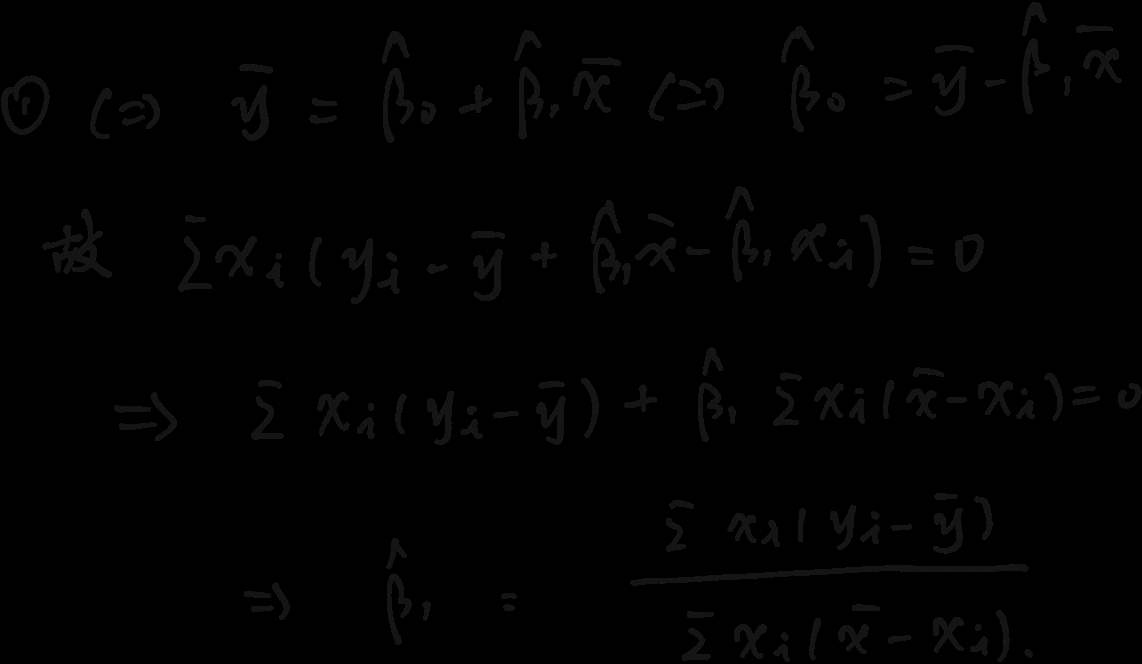 ① ⇔ ȳ = β̂₀ + β̂₁ x̄ ⇔ β̂₀ = ȳ - β̂₁ x̄
故 Σxᵢ(yᵢ - ȳ + β̂₁x̄ - β̂₁xᵢ) = 0
⇒ Σ xᵢ(yᵢ - ȳ) + β̂₁ Σxᵢ(x̄ - xᵢ) = 0
⇒ β̂₁ = Σ xᵢ(yᵢ - ȳ) / Σ xᵢ(x̄ - xᵢ).